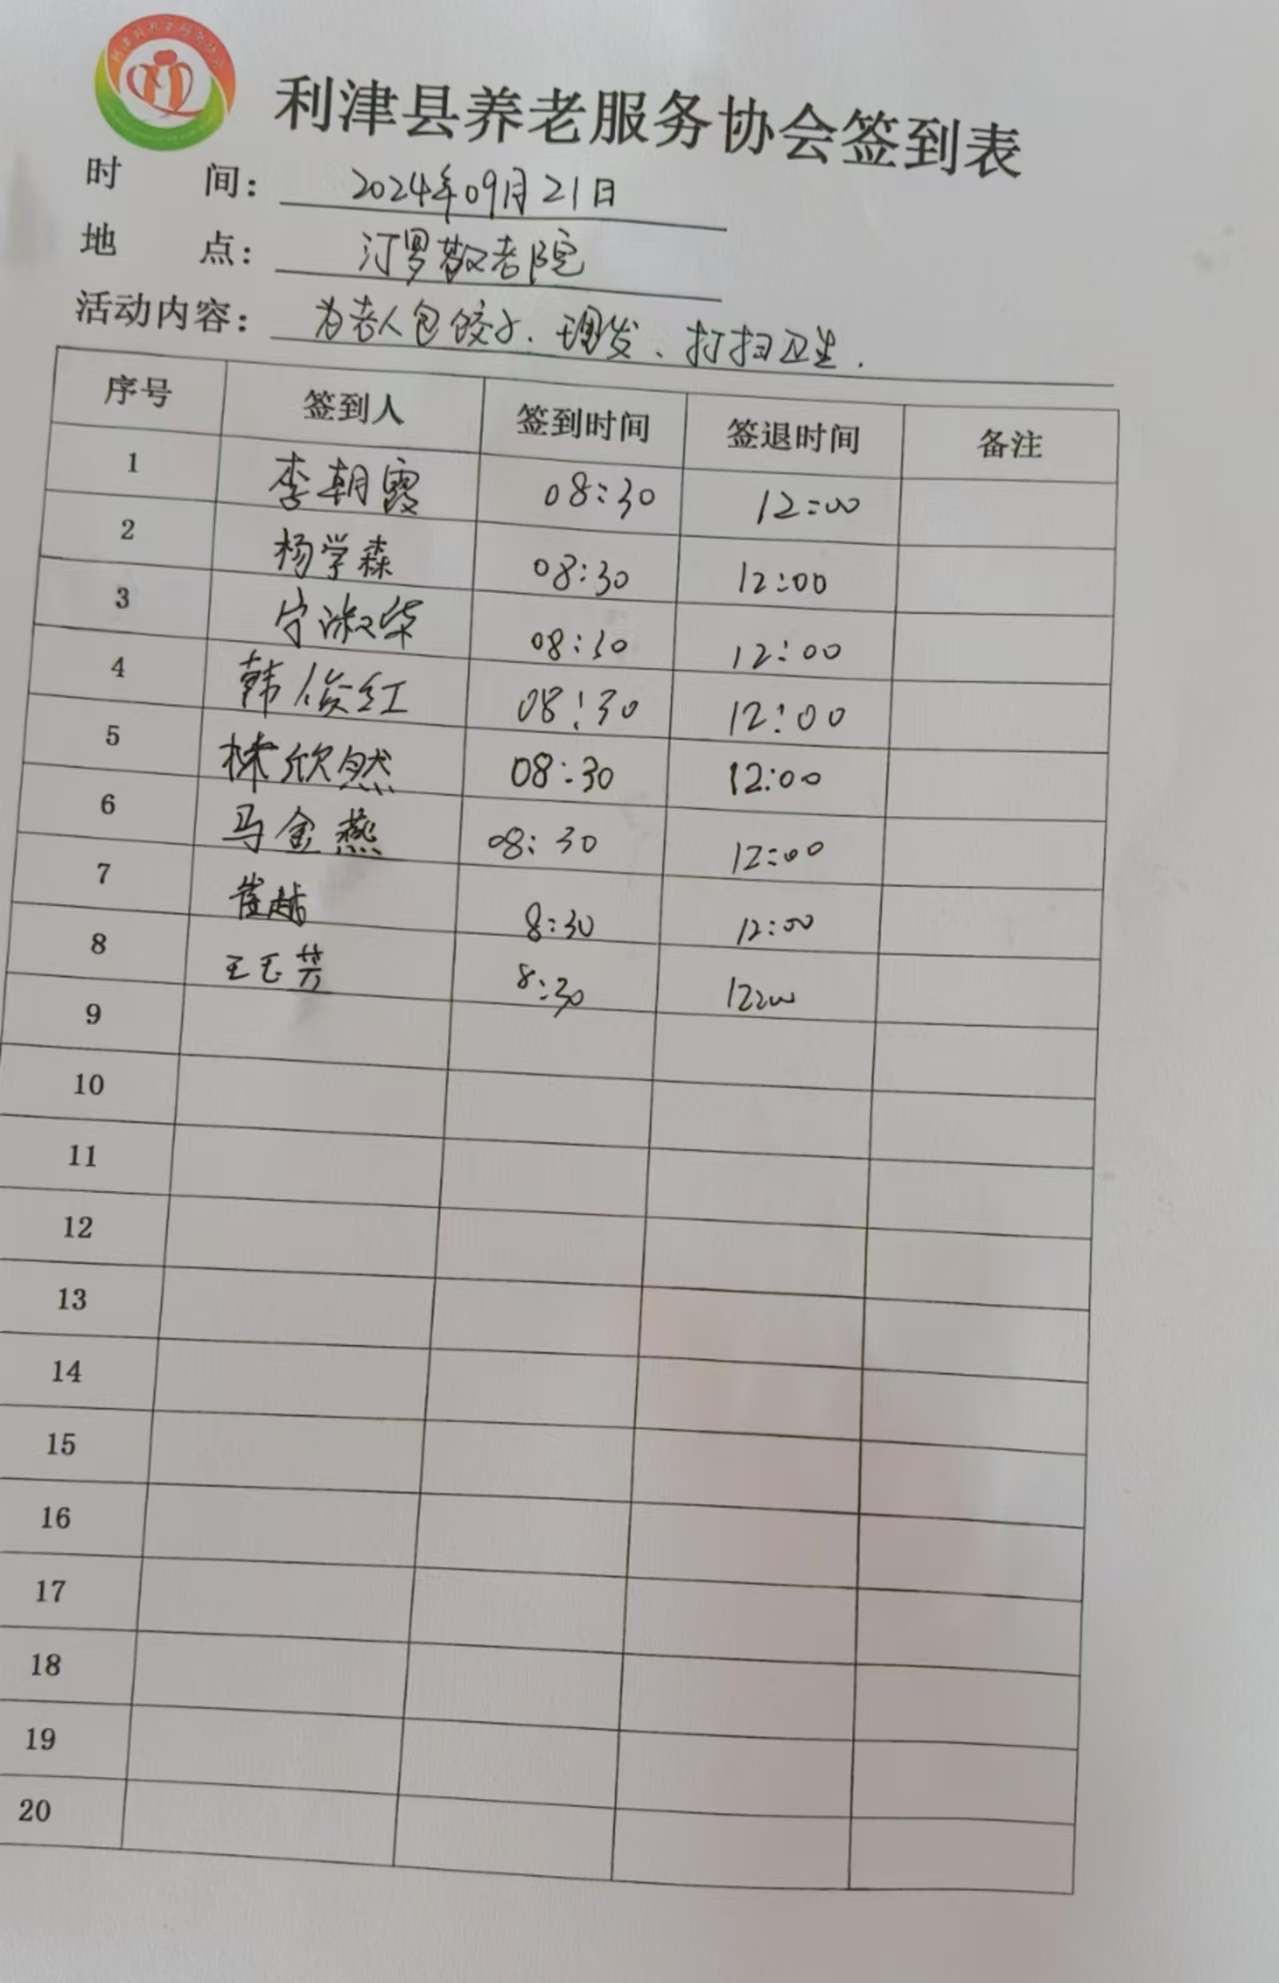 利津县养老服务协会签到表
时 间: 2024年09月21日
地 点: 汀罗敬老院
活动内容: 为老人包饺子、理发、打扫卫生.
序号 签到人 签到时间 签退时间 备注
1 李朝霞 08:30 12:00
2 杨学森 08:30 12:00
3 宁淑华 08:30 12:00
4 韩俊红 08:30 12:00
5 林欣然 08:30 12:00
6 马金燕 08:30 12:00
7 崔越 8:30 12:00
8 王玉芳 8:30 12:00
9
10
11
12
13
14
15
16
17
18
19
20